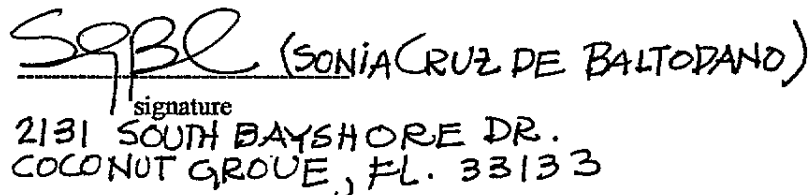 (SONIA CRUZ DE BALTODANO)
signature
2131 SOUTH BAYSHORE DR.
COCONUT GROVE, FL. 33133